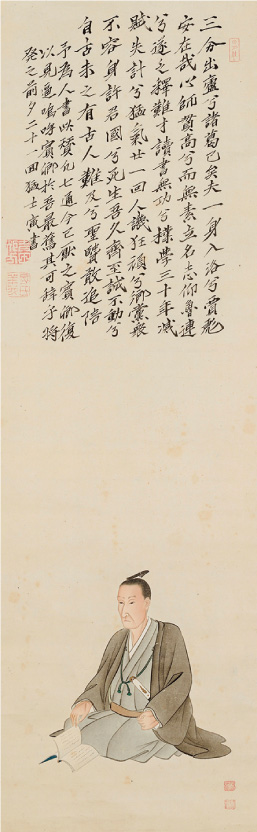 三分出廬兮諸葛已矣夫一身入洛兮賈彪
安在哉心師貫高兮而無素立名志仰魯連
兮遂乏釋難才讀書無功兮樸學三十年滅
賊失計兮猛氣廿一回人譏狂頑兮鄉黨衆
不容身許君國兮死生吾久齊至誠不動兮
自古未之有古人難及兮聖賢敢追陪
予為人書此贊凡七通今已厭之賓卿復
以見逼嗚呼賓卿於吾最舊其可辭乎將
發之前夕二十一回猛士寅書